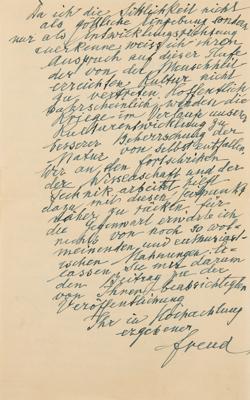 Da ich die Sittlichkeit nicht
als göttliche Eingebung sondern
nur als Entwicklungsleistung
anerkenne, weiss ich ihren
Anspruch auf dieser
von der Menschheit
erreichten Kultur nicht
zu vertreten. Hoffentlich
wahrscheinlich werden die
Kriege im Verlauf unserer
Kulturentwicklung zu
besserer Beherrschung der
Natur von selbst entfallen.
Wir an den Fortschritten
der Wissenschaft und der
Technik arbeiten
dazu mit diesen Zeitpunkt
näher zu rücken. Für
die Gegenwart erwarte ich
nichts von noch so wohl-
meinenden und enthusiast-
ischen Mahnungen.
lassen Sie mir darum
den Beitrag zu der
von Ihnen beabsichtigten
Veröffentlichung
Ihr in Hochachtung
ergebener
Freud